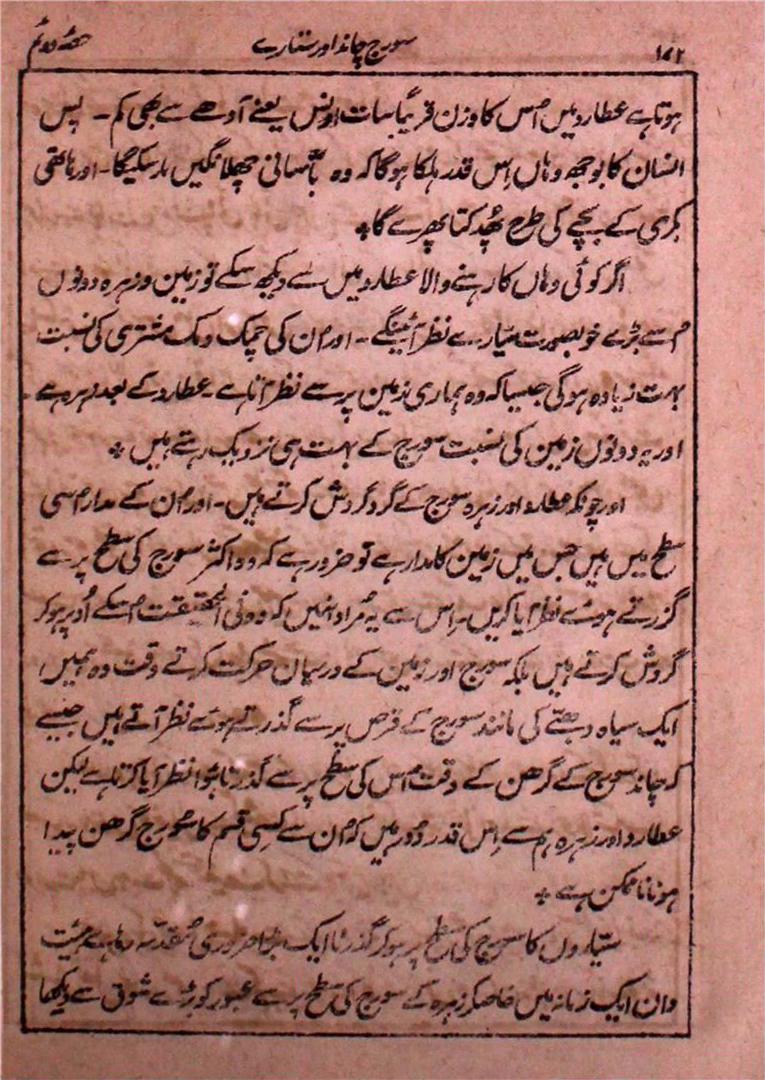 ۱۴۲ سورج چاند اور ستارے حصّہ دوئم
ہوتا ہے عطارد میں اُس کا وزن قریبًا سات اونس یعنے آدھے سے بھی کم ۔ پس
انسان کا بوجھ وہاں اِس قدر ہلکا ہوگا کہ وہ بآسانی چھلانگیں مار سکیگا ۔ اور ہاتھی
بکری کے بچے کی طرح پُھدکتا پھرے گا ٭
اگر کوئی وہاں کا رہنے والا عطارد میں سے دیکھ سکے تو زمین و زہرہ دونوں
اُسے بڑے خوبصورت سیّارے نظر آئینگے ۔ اور اُن کی چمک دمک مشتری کی نسبت
بہت زیادہ ہوگی جیسا کہ وہ ہماری زمین پر سے نظر آتا ہے ۔ عطارد کے بعد زہرہ ہے ۔
اور یہ دونوں زمین کی نسبت سورج کے بہت ہی نزدیک رہتے ہیں ٭
اور چونکہ عطارد اور زہرہ سورج کے گرد گردش کرتے ہیں ۔ اور اُن کے مدار اُسی
سطح میں ہیں جس میں زمین کا مدار ہے تو ضرور ہے کہ وہ اکثر سورج کی سطح پر سے
گزرتے ہوئے نظر آیا کریں ۔ اِس سے یہ مُراد نہیں کہ وہ فی الحقیقت اُسکے اُوپر ہو کر
گردش کرتے ہیں بلکہ سورج اور زمین کے درمیان حرکت کرتے وقت وہ ہمیں
ایک سیاہ دھبّے کی مانند سورج کے قرص پر سے گذرتے ہوئے نظر آتے ہیں جیسے
کہ چاند سورج کے گرھن کے وقت اُس کی سطح پر سے گذرتا ہُوا نظر آیا کرتا ہے لیکن
عطارد اور زہرہ ہم سے اِس قدر دُور ہیں کہ اُن سے کِسی قسم کا سُورج گرھن پیدا
ہونا ناممکن ہے ٭
سیّاروں کا سورج کی سطح پر ہو کر گذرنا ایک بڑا ضروری مُقدّمہ رہا ہے ہیئت
دان ایک زمانہ میں خاصکر زہرہ کے سورج کی سطح پر سے عبور کو بڑے شوق سے دیکھا